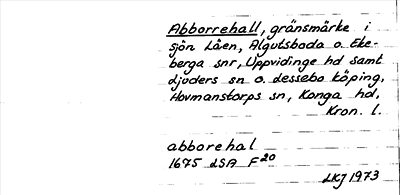 Abborrehall, gränsmärke i
sjön Låen, Algutsboda o. Eke-
berga snr, Uppvidinge hd samt
Ljuders sn o. Lessebo köping,
Hovmanstorps sn, Konga hd,
Kron. l.
abborehal
1675 LSA F20
LKJ 1973